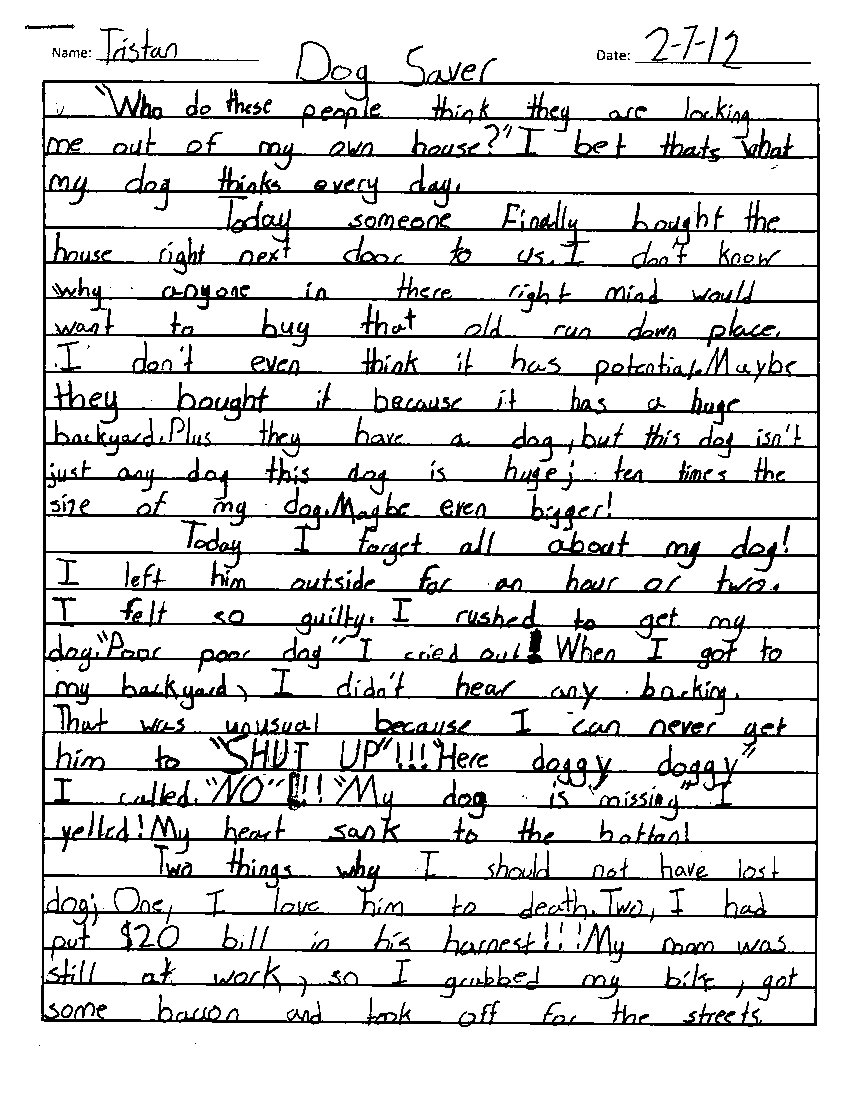 Name: Tristan Date: 2-7-12
Dog Saver
"Who do these people think they are locking
me out of my own house?" I bet thats what
my dog thinks every day.
Today someone Finally bought the
house right next door to us. I don't know
why anyone in there right mind would
want to buy that old run down place.
I don't even think it has potential. Maybe
they bought it because it has a huge
backyard. Plus they have a dog, but this dog isn't
just any dog this dog is huge; ten times the
size of my dog. Maybe even bigger!
Today I forget all about my dog!
I left him outside for an hour or two.
I felt so guilty. I rushed to get my
dog. "Poor poor dog" I cried out! When I got to
my backyard, I didn't hear any barking.
That was unusual because I can never get
him to "SHUT UP"!!! "Here doggy doggy"
I called. "NO"!!! "My dog is missing" I
yelled! My heart sank to the bottan!
Two things why I should not have lost
dog; One, I love him to death. Two, I had
put $20 bill in his harnest!!! My mom was
still at work, so I grabbed my bike, got
some bacon and took off for the streets